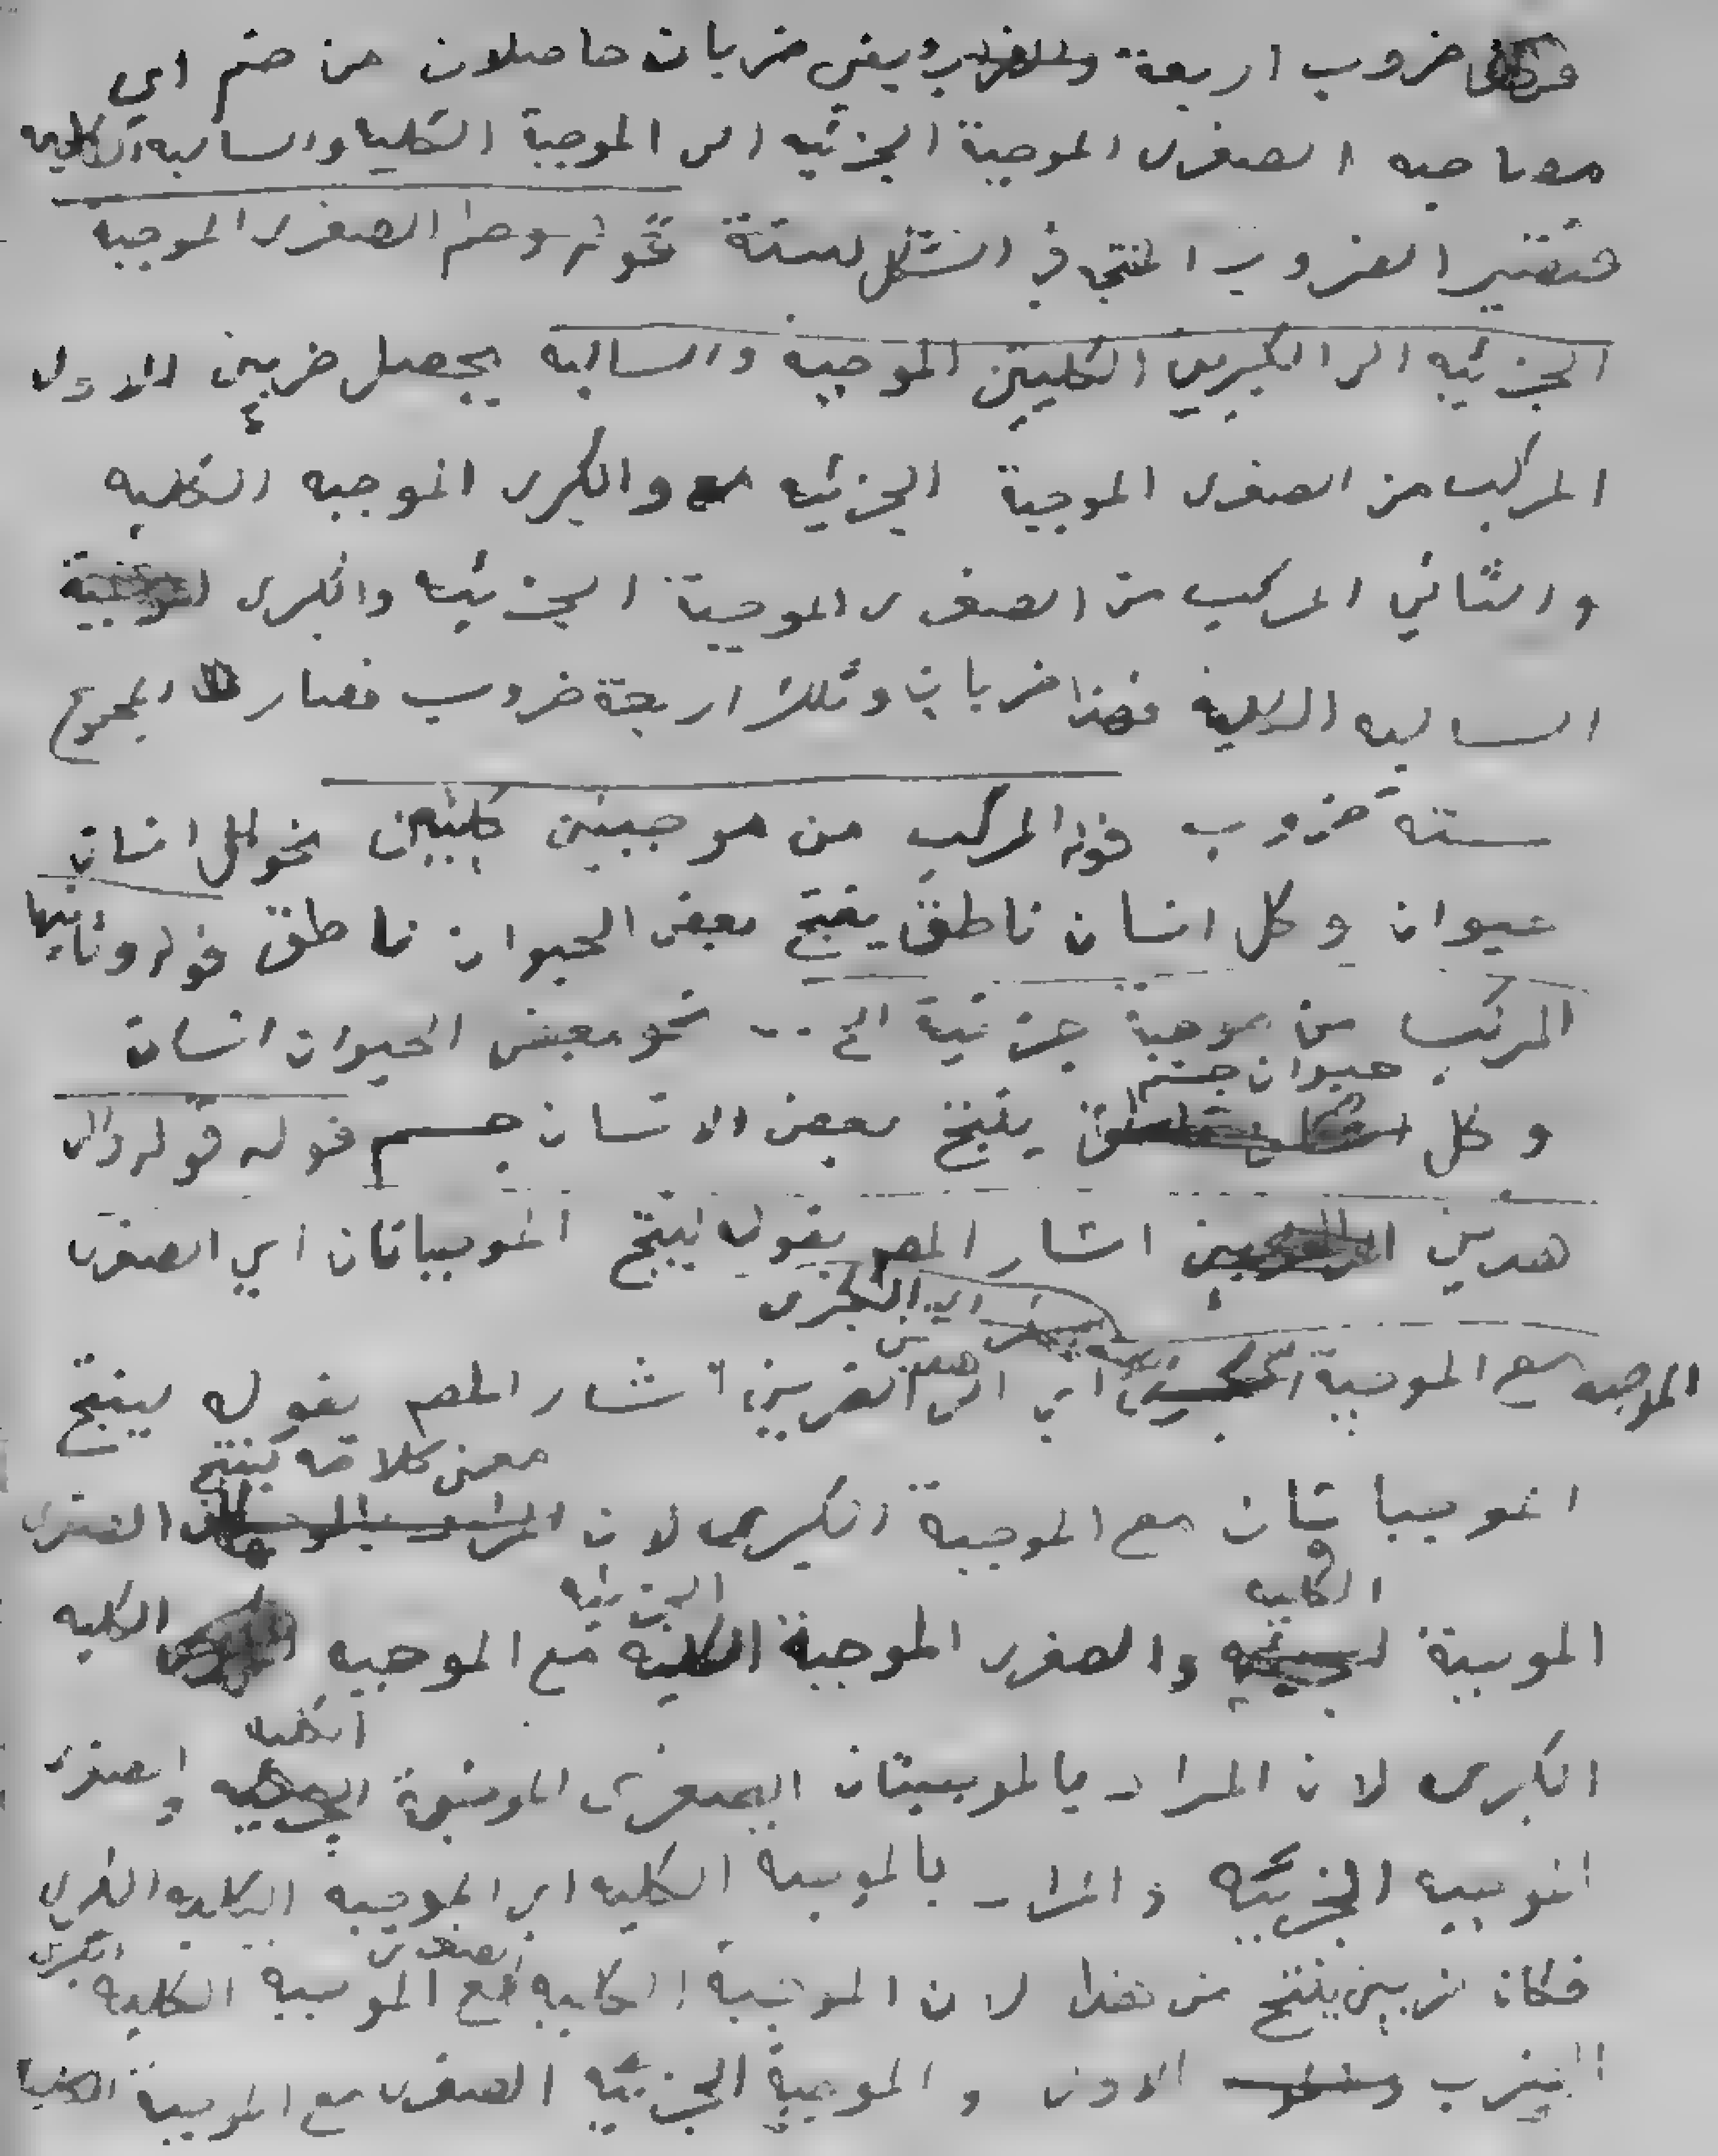 ضروب اربعة ويغي ضربان حاصلان من ضم اي
صاحبه الصغرى الموجبة الجزئيه الى الموجبة الكليا والسالبه الكليه
فتصير الضروب المنتجه في الشكل ستة قوله وضم الصغرى الموجبة
الجزئيه الى الكبريين الكليين الموجبه والسالبه يحصل ضربين الاول
المركب من الصغرى الموجبة الجزئيه والكبرى الموجبه الكليه
والثاني المركب من الصغرى الموجبة الجزئيه والكبرى
السالبه الكلية فهذا ضربان وتلك اربعة ضروب فصار المجموع
ستة ضروب قوله المركب من موجبتين كليتين نحو كل انسان
حيوان وكل انسان ناطق ينتج بعض الحيوان ناطق قوله وثانيها
المركب من موجبة جزئية الخ .. نحو بعض الحيوان انسان
حيوان جسم
وكل ينتج بعض الانسان جسم قوله قوله والى
هذين اشار المصـ بقول لينتج الموجباتان اي الصغرى
اي الكبرى
الموجبه مع الموجبة اي الى هذين الضربين اشار المصـ بقوله لينتج
معنى كلامه لينتج
الموجباتان مع الموجبة الكبرى لان الصغرى
الكليه الجزئيه
الموجبة والصغرى الموجبة مع الموجبه الكليه
الكليه
الكبرى لان المراد بالموجبتان الصغرى الموجبة والصغرى
الموجبه الجزئيه والمراد بالموجبة الكليه اي الموجبه الكليه الكبرى
الصغرى الكبرى
فكان ضربين ينتج من هذا لان الموجبة الكليه مع الموجبة الكليه
الضرب الاول والموجبة الجزئيه الصغرى مع الموجبة الكليا